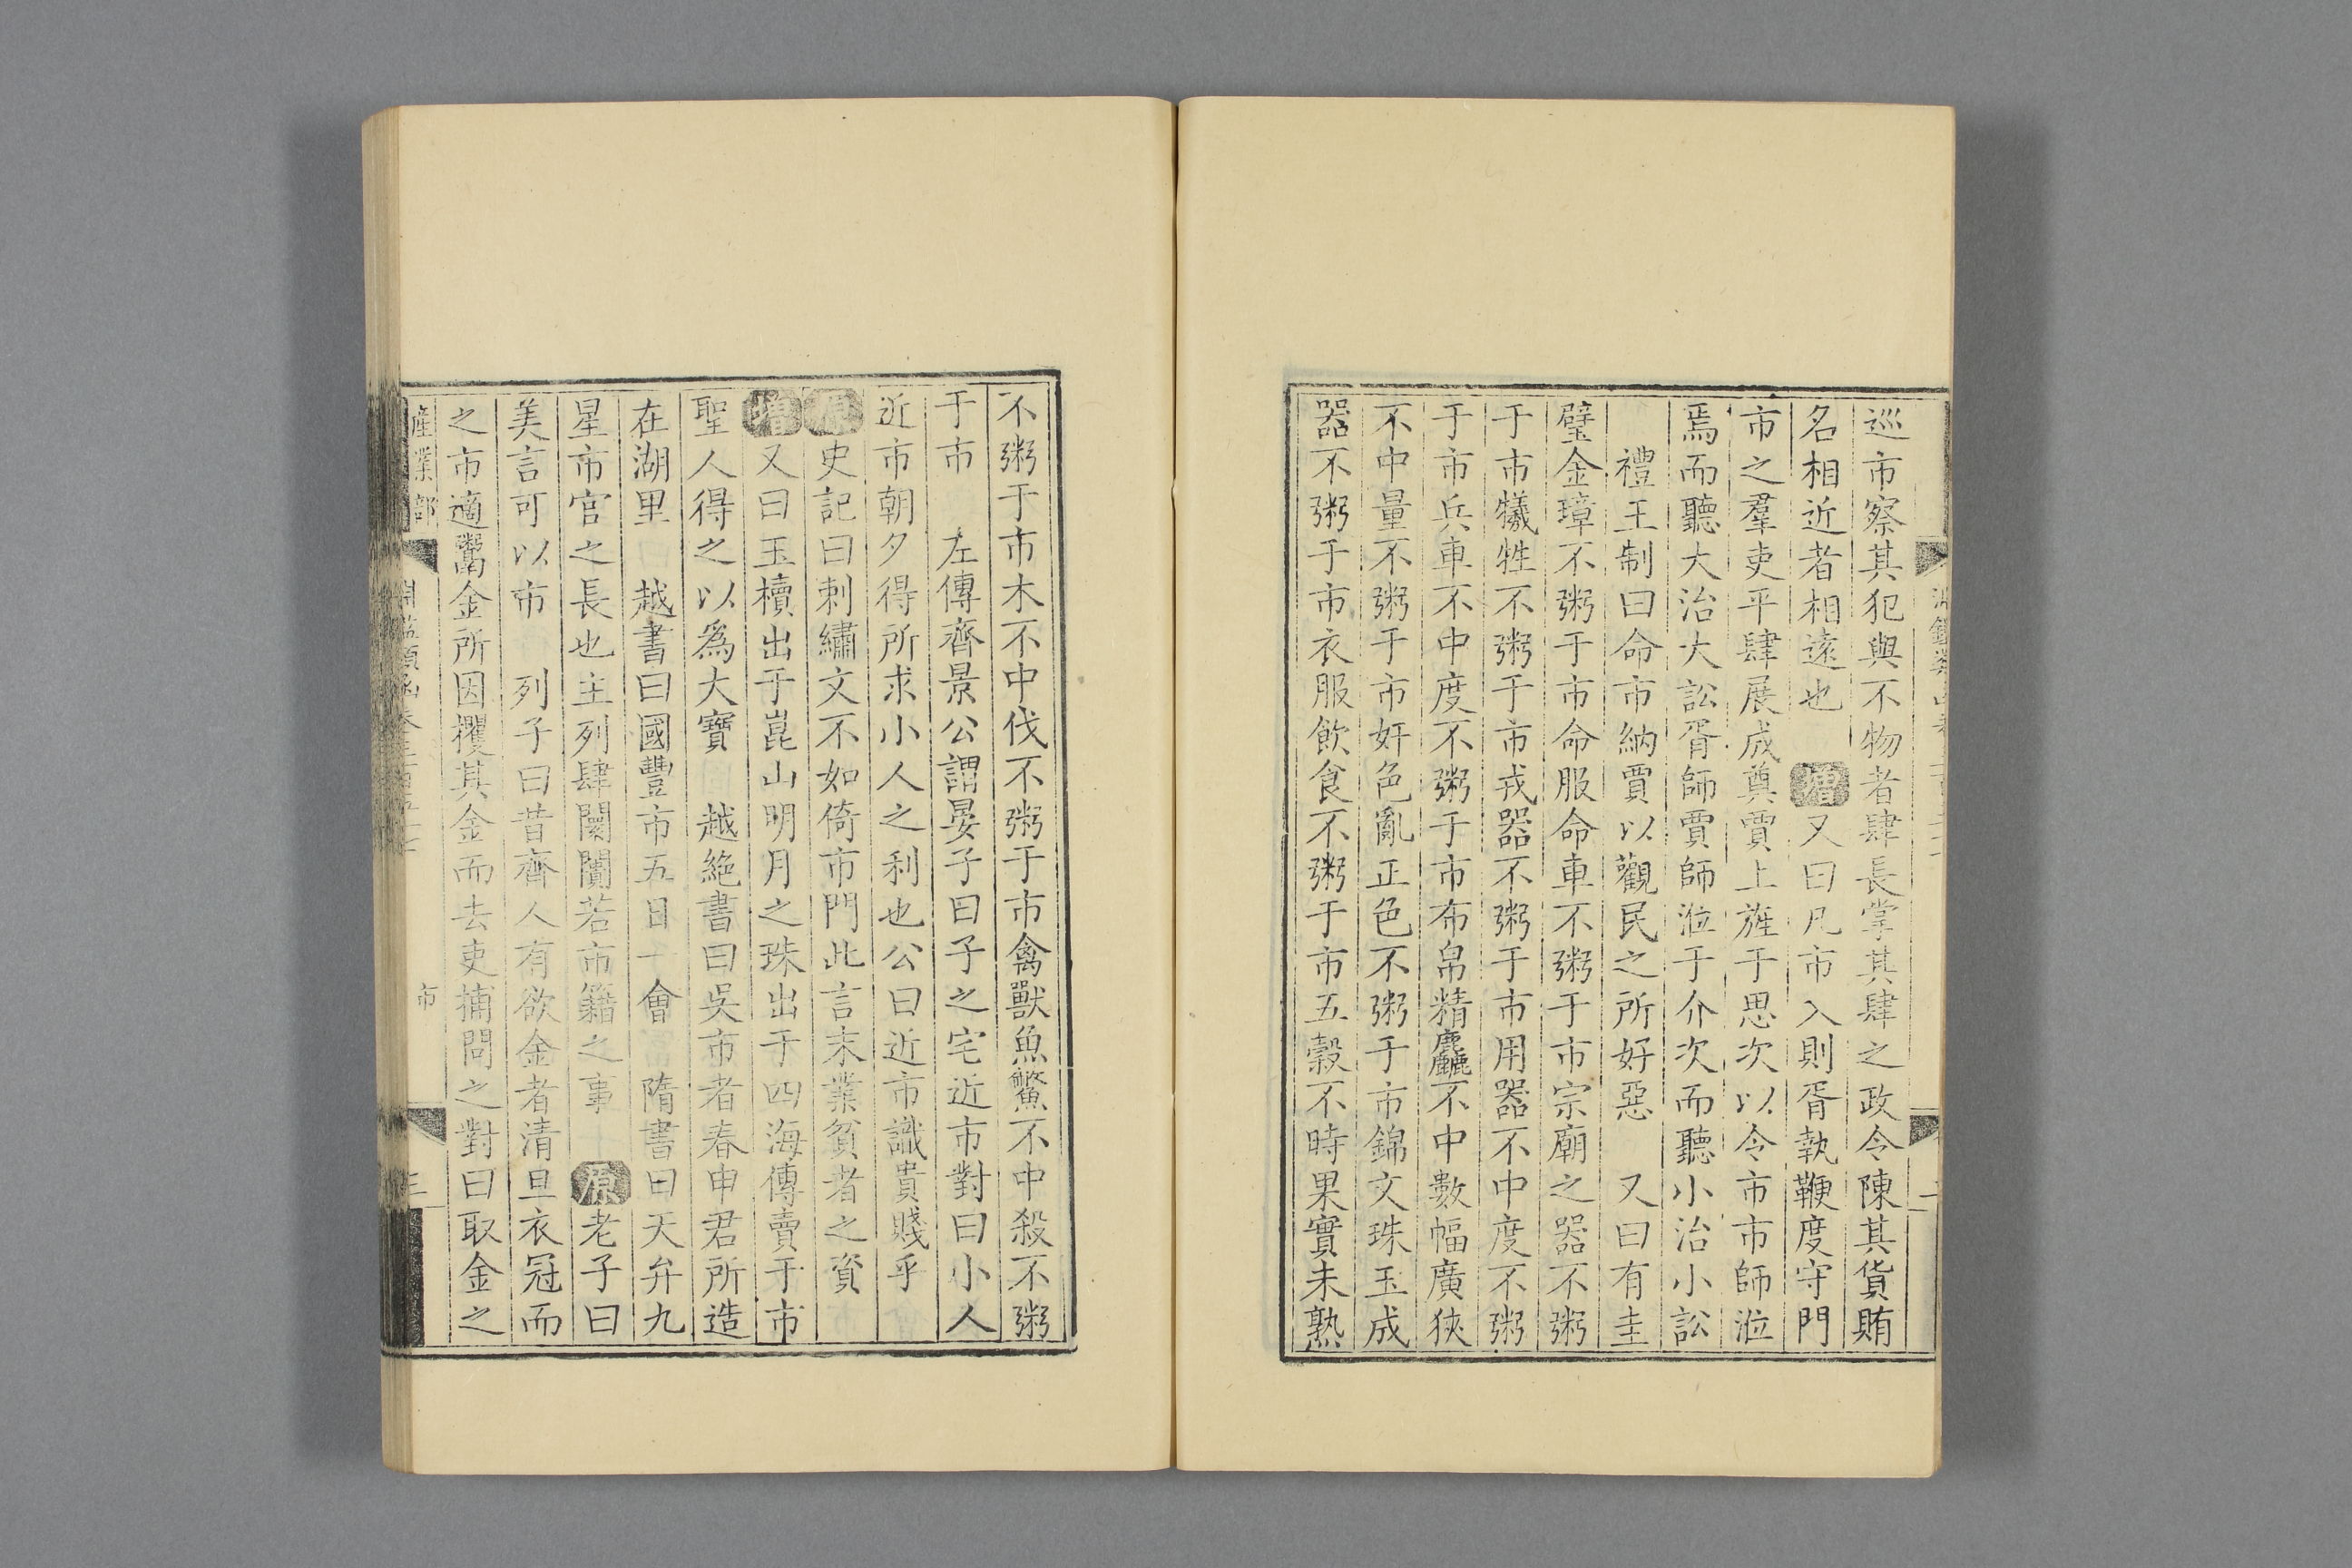 巡市察其犯與不物者肆長掌其肆之政令陳其貨賄
名相近者相遠也 增又曰凡市入則胥執鞭度守門
市之羣吏平肆展成奠賈上旌于思次以令市市師涖
焉而聽大治大訟胥師賈師涖于介次而聽小治小訟
禮王制曰命市納賈以觀民之所好惡 又曰有圭
璧金璋不粥于市命服命車不粥于市宗廟之器不粥
于市犧牲不粥于市戎器不粥于市用器不中度不粥
于市兵車不中度不粥于市布帛精麤不中數幅廣狹
不中量不粥于市奸色亂正色不粥于市錦文珠玉成
器不粥于市衣服飲食不粥于市五穀不時果實未熟
不粥于市木不中伐不粥于市禽獸魚鱉不中殺不粥
于市 左傳齊景公謂晏子曰子之宅近市對曰小人
近市朝夕得所求小人之利也公曰近市識貴賤乎
原史記曰刺繡文不如倚市門此言末業貧者之資
增又曰玉櫝出于崑山明月之珠出于四海傳賣于市
聖人得之以爲大寶 越絶書曰吳市者春申君所造
在湖里 越書曰國豐市五日一會 隋書曰天弁九
星市官之長也主列肆闤闠若市籍之事 原老子曰
美言可以市 列子曰昔齊人有欲金者清旦衣冠而
之市適鬻金所因攫其金而去吏捕問之對曰取金之
產業部 市 三